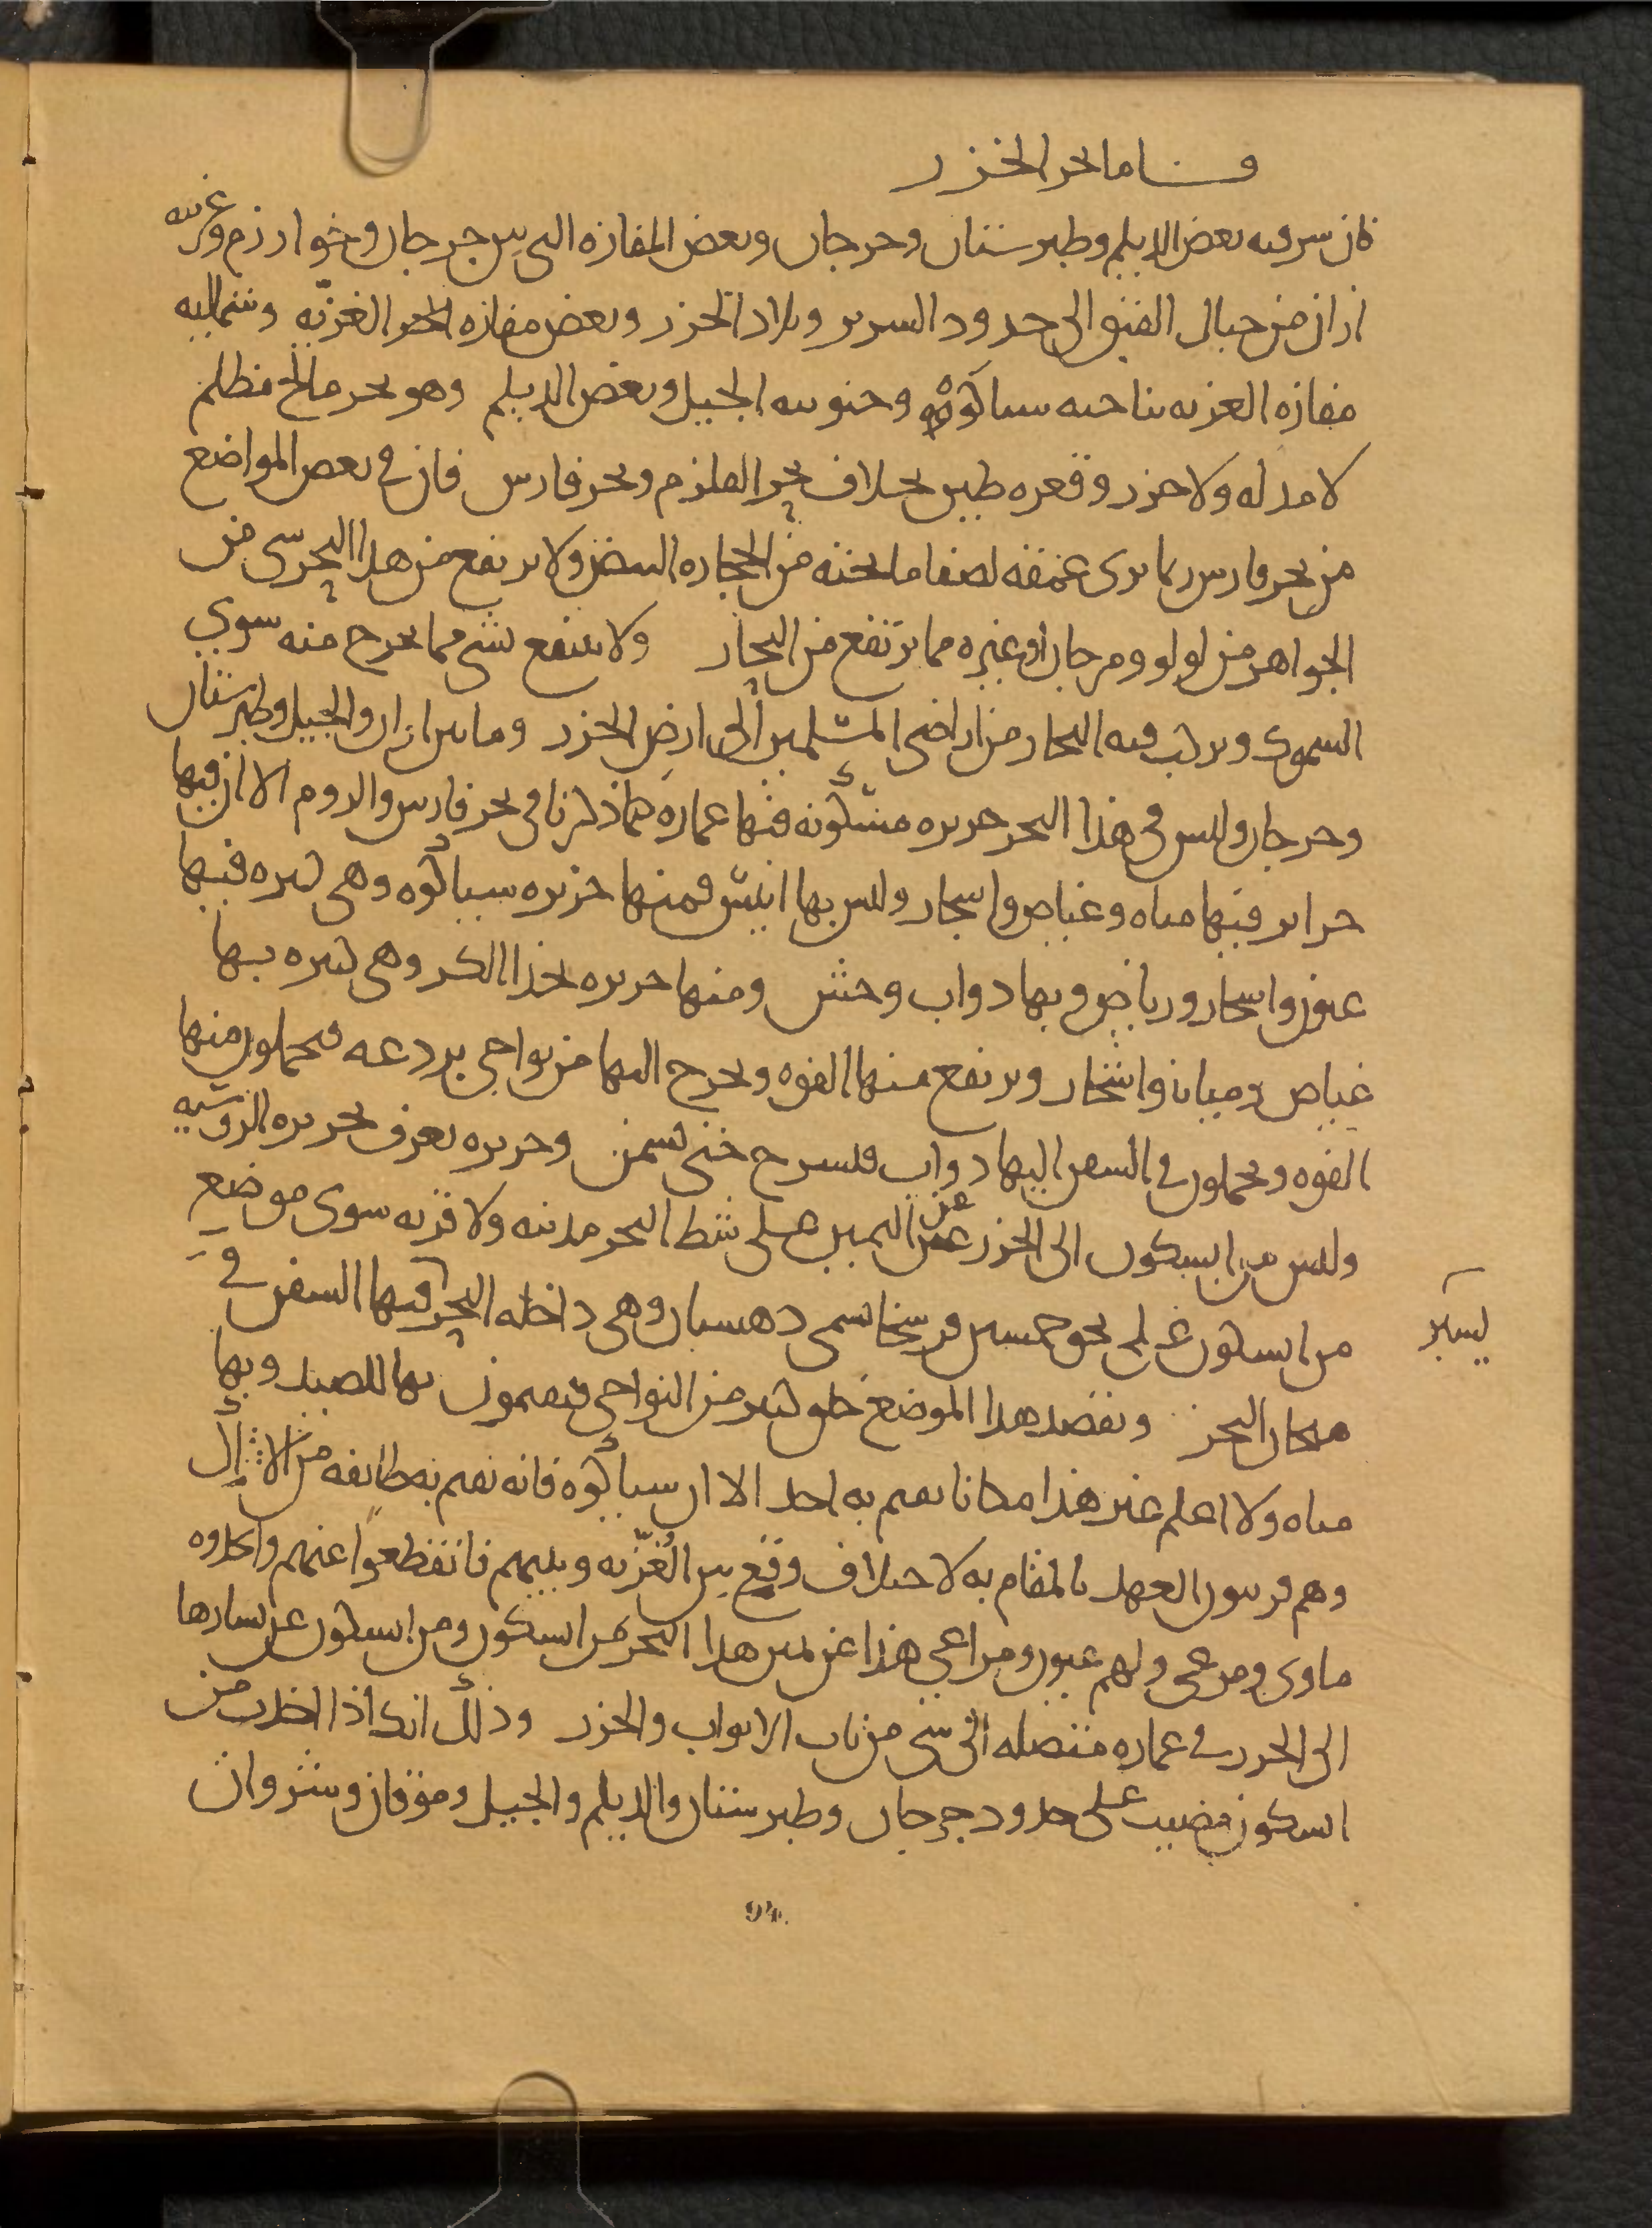 واما بحر الخزر
فان شرقيه بعض الديلم وطبرستان وجرجان وبعض المفازه التى بين جرجان وخوارزم وغربيه
اران من جبال القبق الى حدود السرير وبلاد الخزر وبعض مفازه الغزيّه وشماليه
مفازه الغزيه بناحيه سياكوه وجنوبيه الجيل وبعض الديلم وهو بحر مالح مظلم
لا مد له ولا جزر وقعره طين بخلاف بحر القلزم وبحر فارس فان فى بعض المواضع
من بحر فارس ربما يرى عمقه لصفا ما تحته من الحجاره البيض ولا يرتفع من هذا البحر شى من
الجواهر من لولو ومرجان او غيره مما يرتفع من البحار ولا ينتفع بشى مما يخرج منه سوى
السموك ويركب فيه التجار من اراضى المسلمين الى ارض الخزر وما بين اران والجيل وطبرستان
وجرجان وليس فى هذا البحر جزيره مسكونه فيها عماره كما ذكرنا فى بحر فارس والروم الا ان فيها
جزاير فيها مياه وغياض واشجار وليس بها انيس فمنها جزيره سياكوه وهى كبيره فيها
عيون واشجار ورياض وبها دواب وحش ومنها جزيره بحذا الكر وهى كبيره بها
غياض ومياه واشجار ويرتفع منها الفوه ويخرج اليها من نواحى بردعه فيحملون منها
الفوه ويحملون فى السفن اليها دواب فتسرح حتى تسمن وجزيره تعرف بجزيره الروسيه
وليس من ابسكون الى الخزر عن عن اليمين على شط البحر مدينه ولا قريه سوى موضع
من ابسكون على نحو خمسين فرسخا تسمى دهستان وهى داخله البحر فيها السفن فى
هيجان البحر ويقصد هذا الموضع خلق كثير من النواحى فيقيمون بها للصيد وبها
مياه ولا اعلم غير هذا مكانا يقيم به احد الا ان سياكوه فانه يقيم به طايفه من الاتراك
وهم قريبون العهد بالمقام به لاختلاف وقع بين الغُزّيه وبينهم فانقطعوا عنهم واتخذوه
ماوى ومرعى ولهم عيون ومراعى هذا عن يمين هذا البحر من ابسكون ومن ابسكون عن يسارها
الى الخزر فى عماره متصله الى شى من باب الابواب والخزر وذلك انك اذا اخذت من
ابسكون مضيت على حدود جرجان وطبرستان والديلم والجيل وموقان وشروان
94.